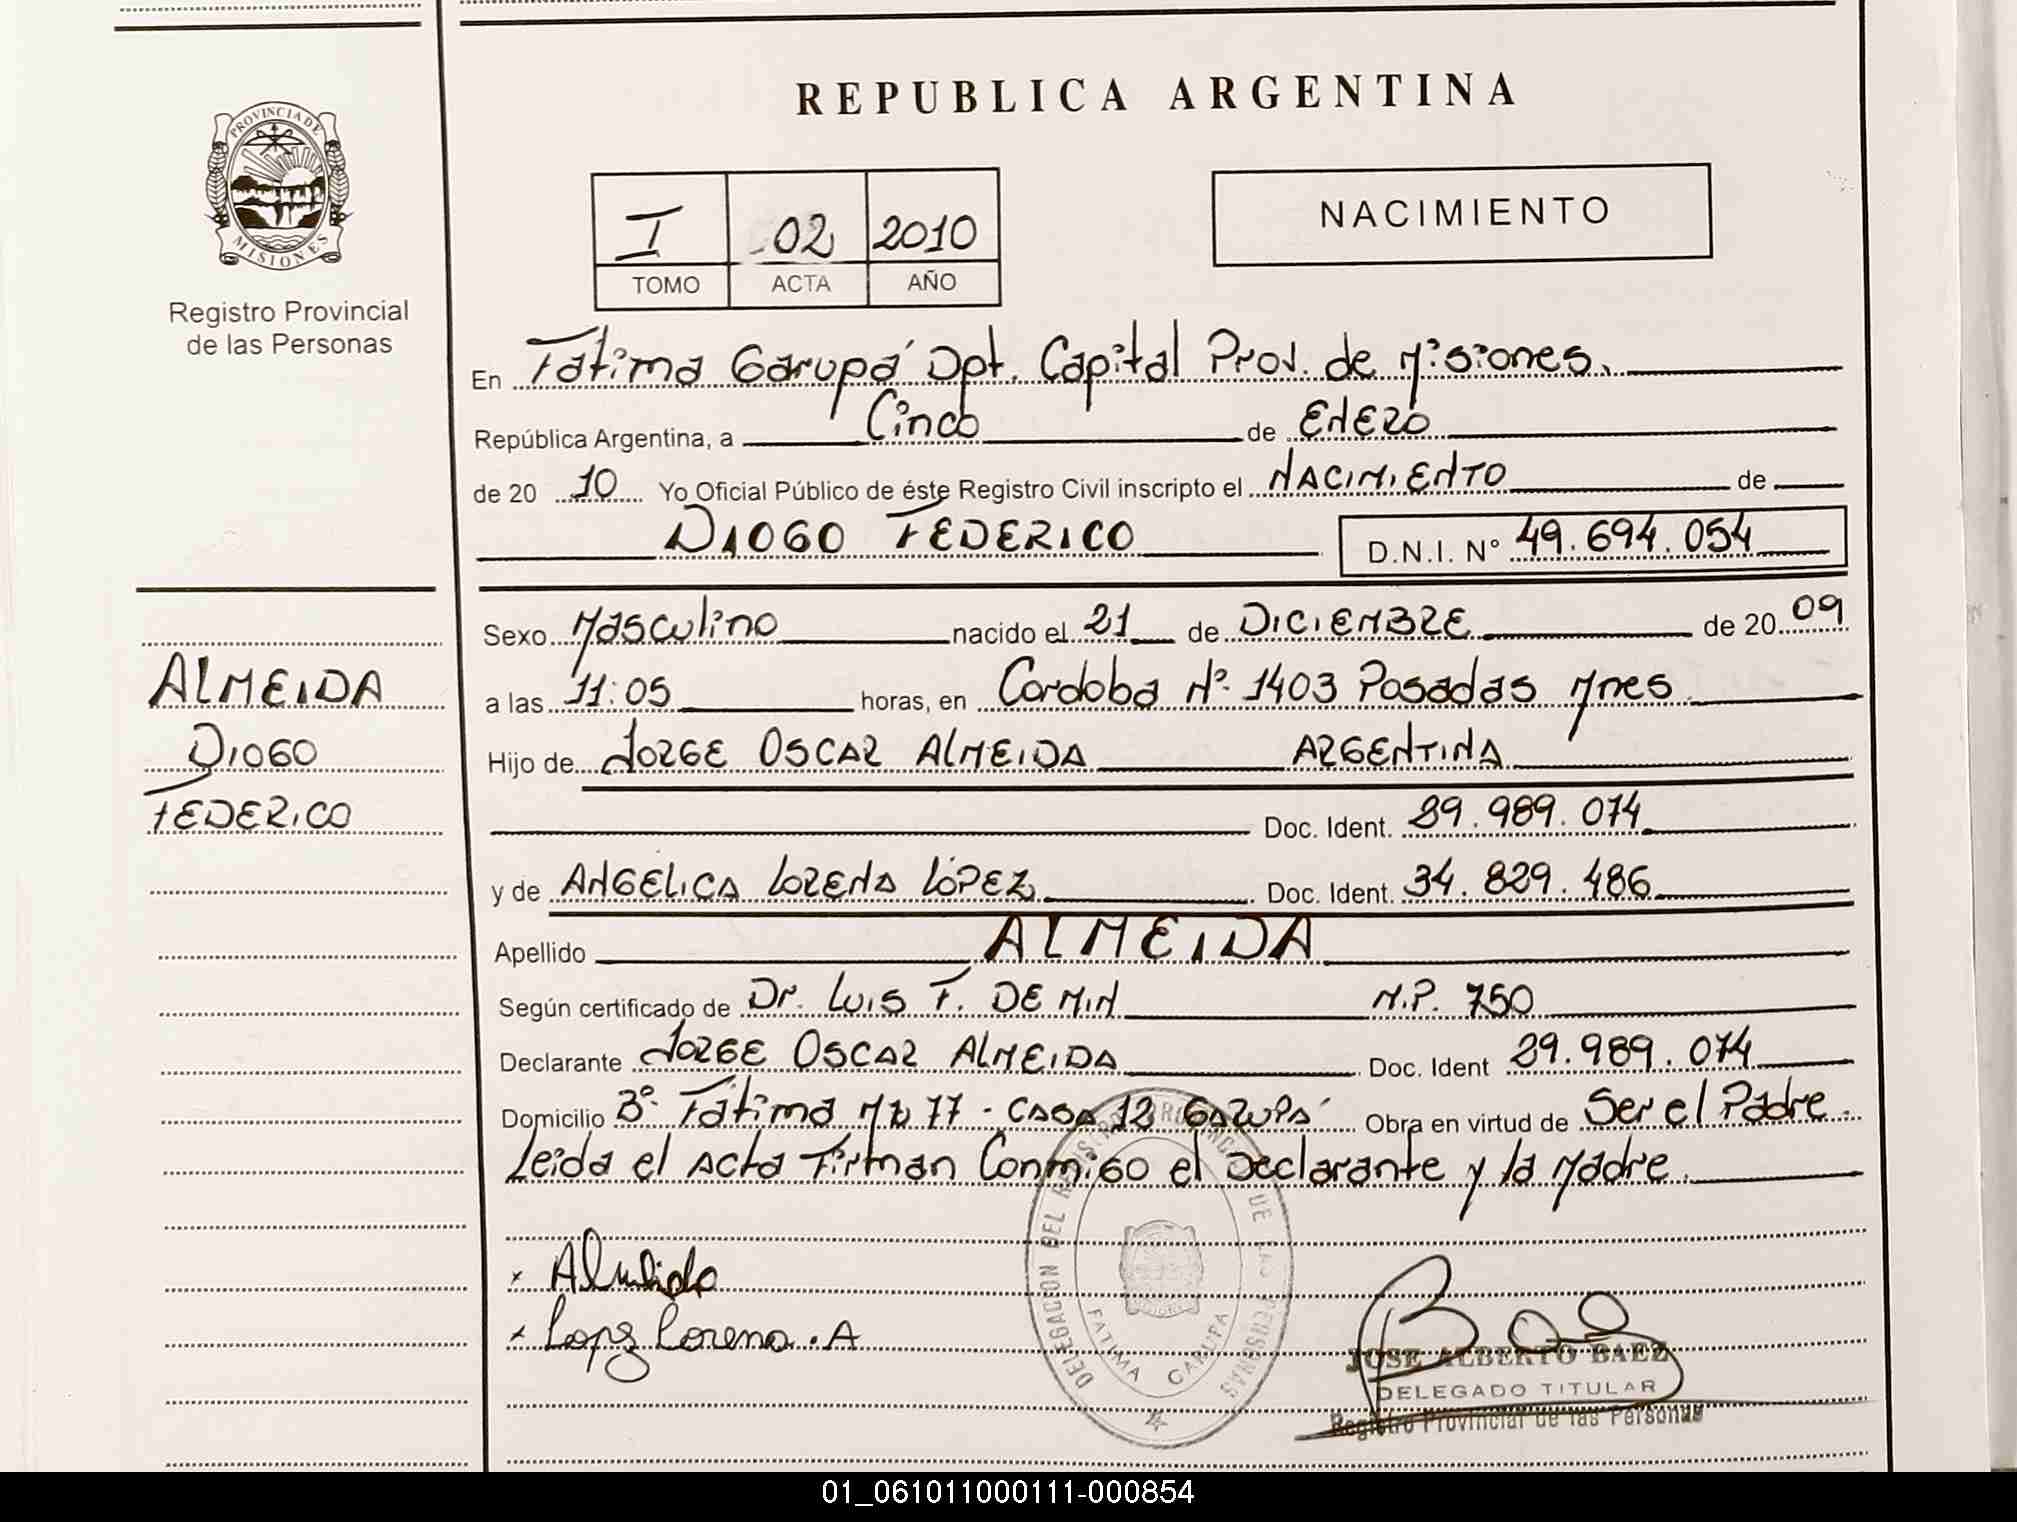 REPUBLICA ARGENTINA
PROVINCIA DE MISIONES
Registro Provincial
de las Personas
I 02 2010
TOMO ACTA AÑO
NACIMIENTO
En Fatima Garupá Dpt. Capital Prov. de Misiones.
República Argentina, a Cinco de ENERO
de 20 10 Yo Oficial Público de éste Registro Civil inscripto el NACIMIENTO de
DIOGO FEDERICO D.N.I. N° 49.694.054
ALMEIDA
DIOGO
FEDERICO
Sexo Masculino nacido el 21 de DICIEMBRE de 20 09
a las 11:05 horas, en Cordoba N° 1403 Posadas Mnes
Hijo de JORGE OSCAR ALMEIDA ARGENTINA
Doc. Ident. 29.989.074
y de ANGELICA LORENA LÓPEZ Doc. Ident. 34.829.486
Apellido ALMEIDA
Según certificado de Dr. LUIS F. DE MIN M.P. 750
Declarante JORGE OSCAR ALMEIDA Doc. Ident 29.989.074
Domicilio B° Fátima Mz 77 - CASA 12 GARUPÁ Obra en virtud de Ser el Padre.
Leida el Acta Firman Conmigo el Declarante y la Madre.
x Almeida
x Lopez Lorena . A
DELEGACION DEL REGISTRO PROVINCIAL DE LAS PERSONAS
FATIMA GARUPA
JOSE ALBERTO BAEZ
DELEGADO TITULAR
Registro Provincial de las Personas
01_061011000111-000854